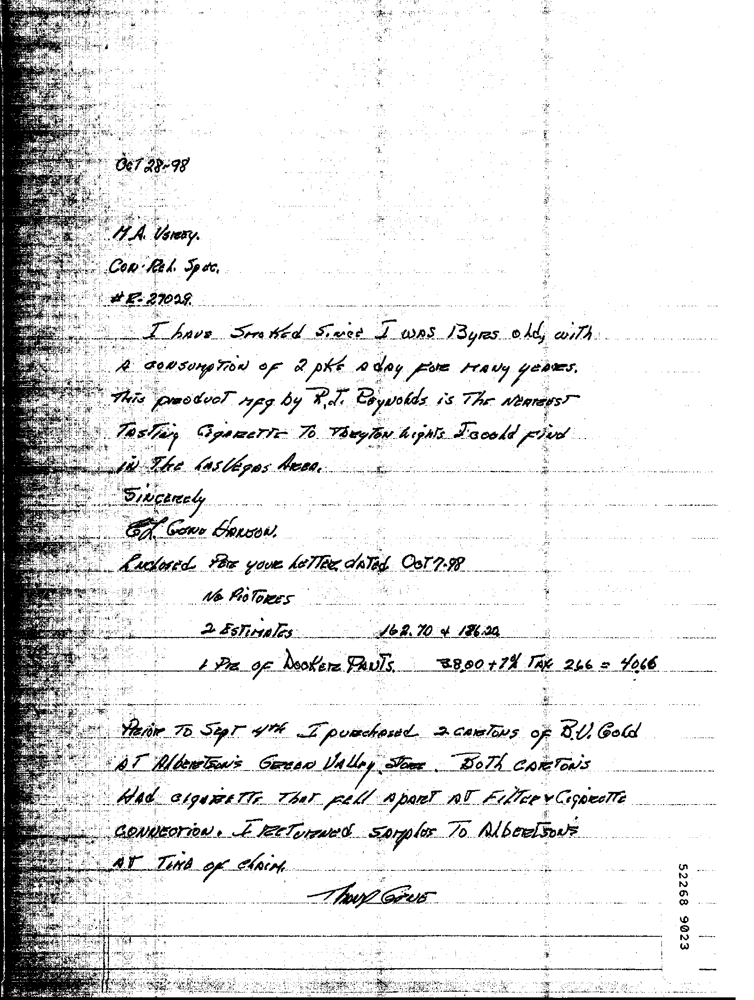 Oct 28-98
M.A. Versey.
Con. Rel. Spec.
# R-27029
I have Smoked Since I was 13yrs old, with
A consumption of 2 pks A day for many years.
This product mfg by R.J. Reynolds is The Nearest
Tasting Cigarette To Tareyton Lights I could find
in The Las Vegas Area.
Sincerely
Gene Hanson.
Enclosed Per your Letter dated Oct 7-98
No Pictures
2 Estimates 162.70 & 186.20
1 Pr. of Docker Pants. 38.00 + 7% Tax 2.66 = 40.66
Prior To Sept 4th I purchased 2 cartons of B.V. Gold
AT Albertson's Green Valley Store. Both carton's
Had cigarette That fell Apart AT Filter & Cigarette
connection. I Returned samples To Albertson's
AT Time of claim.
52268 9023